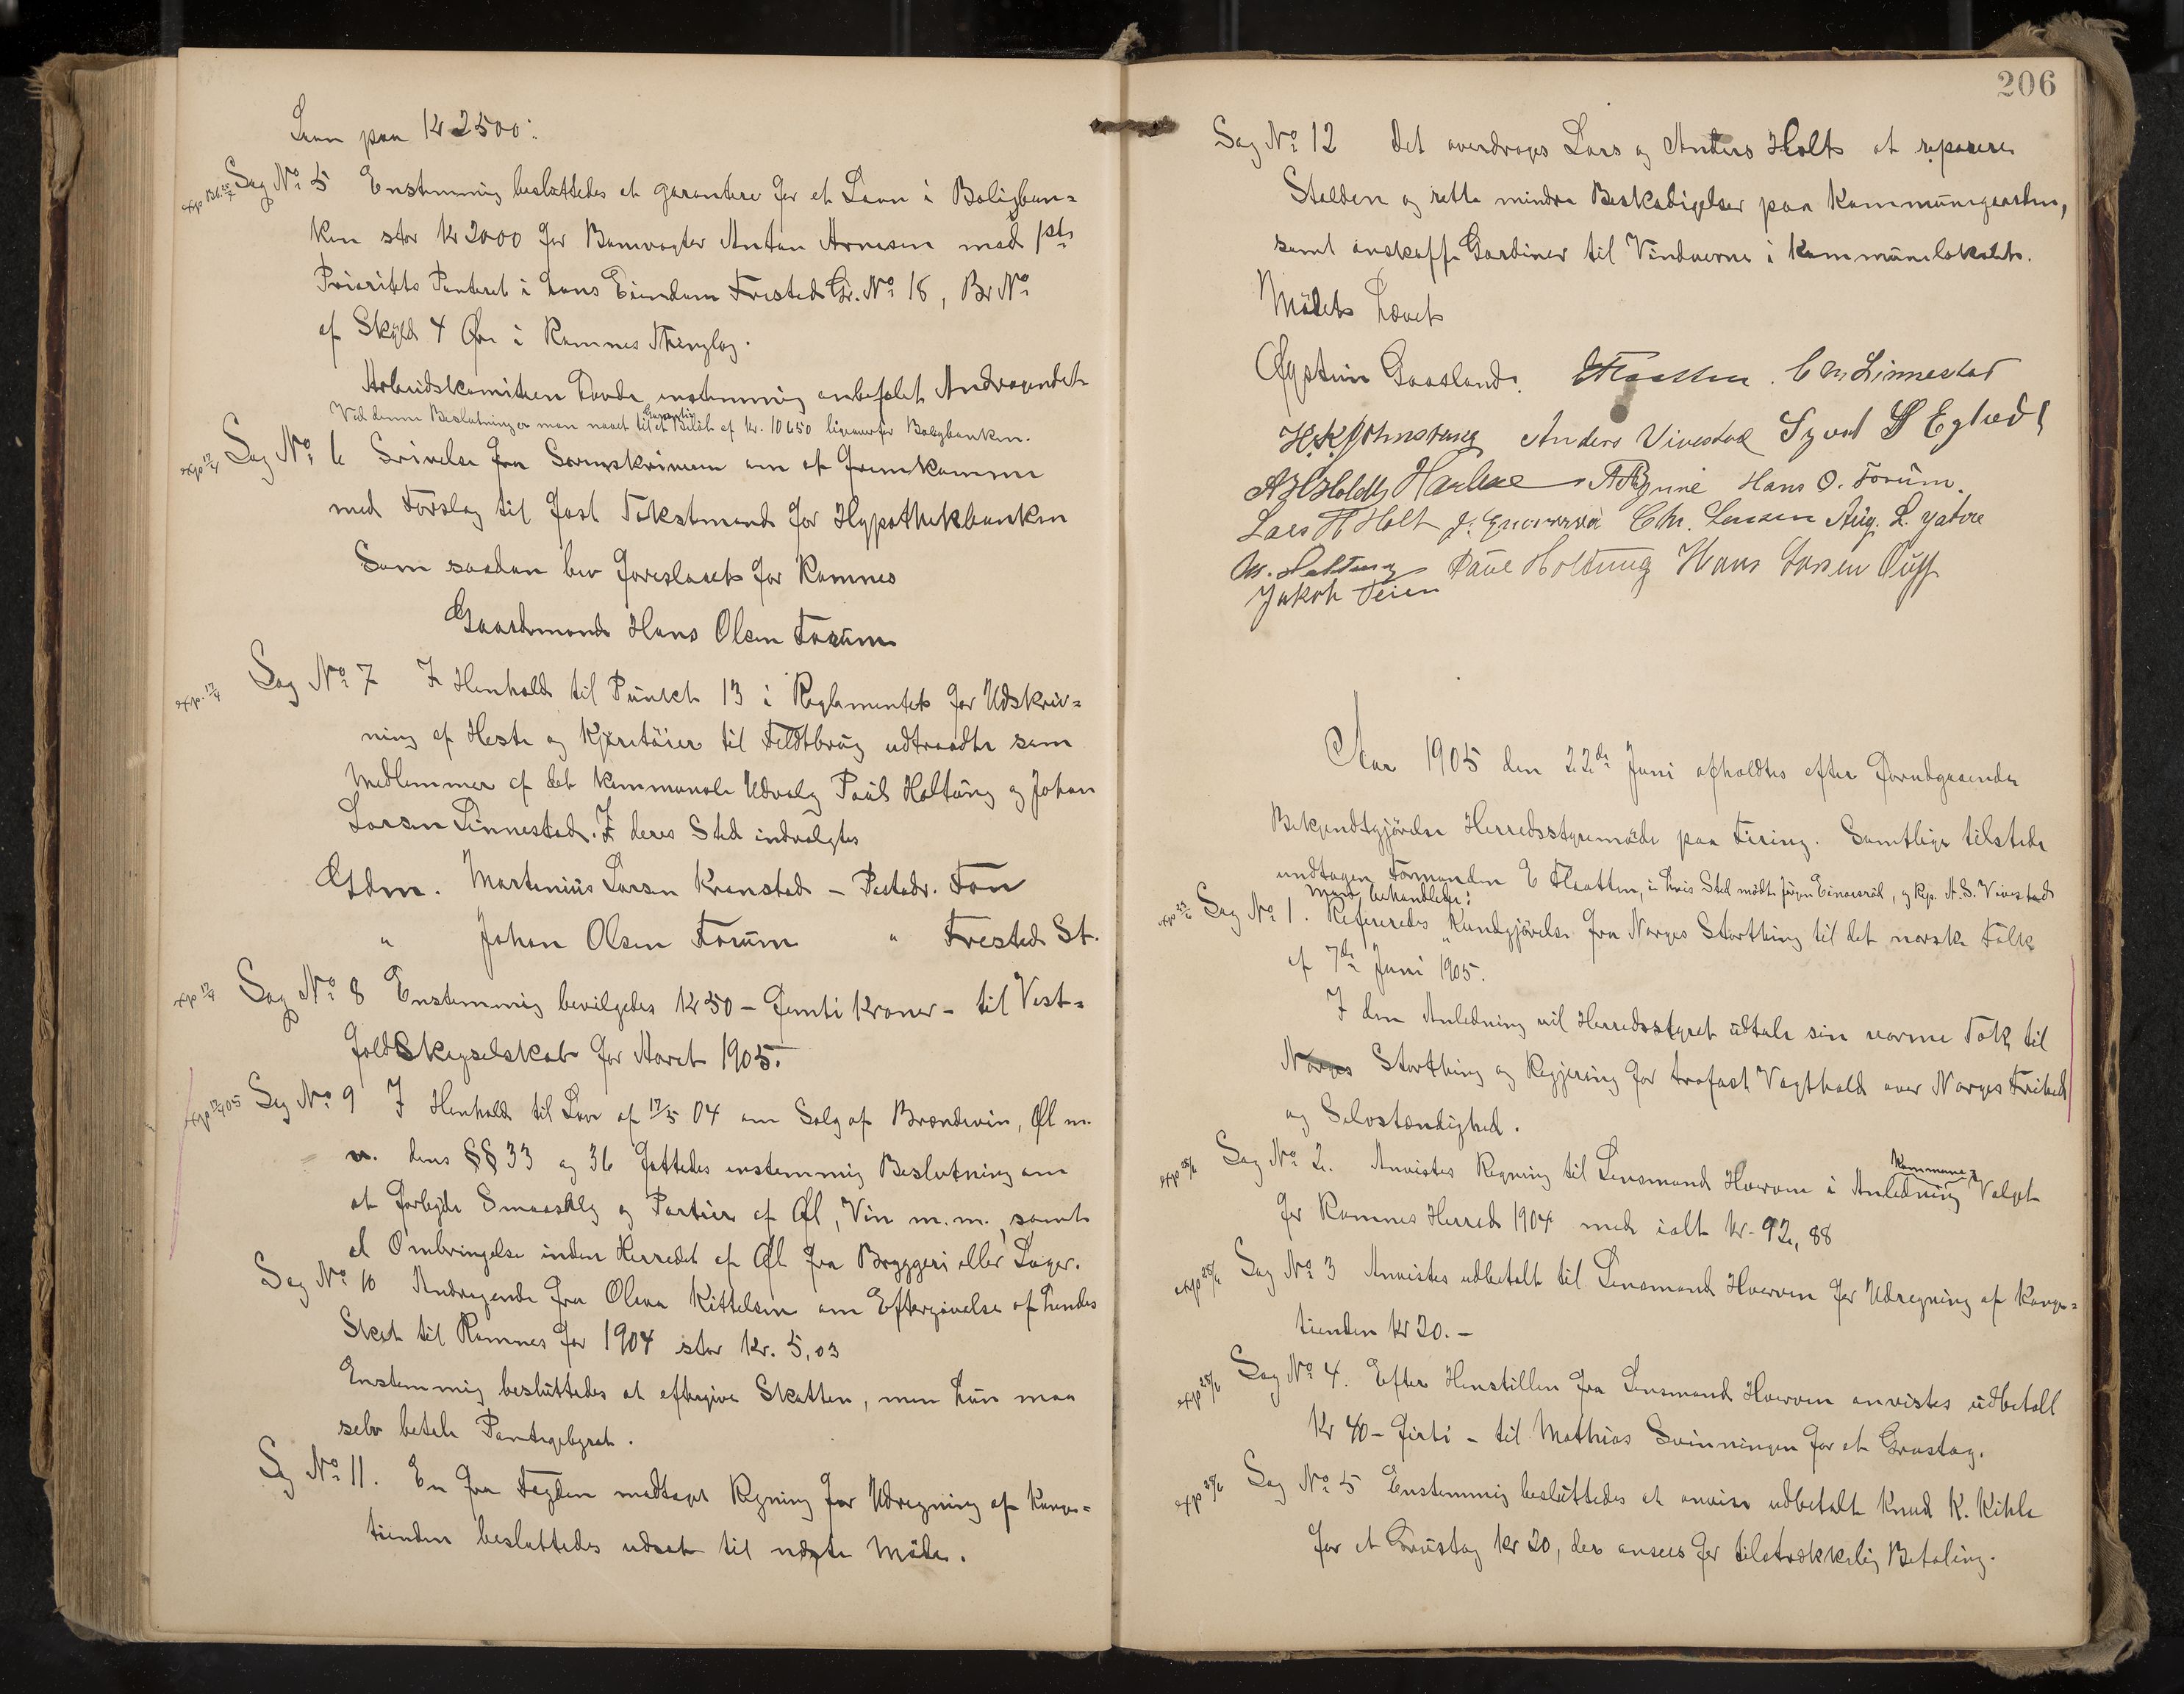 Laan paa Kr 2500:
Sag No 5 Enstemmig besluttedes at garantere for et Laan i Boligban=
ken stor Kr 2000 for Banevogter Anton Arnesen mod 1ste
Prioritets Panteret i hans Eiendom Fresteds Gr. No 18, Br No
af Skyld 4 Øre i Ramnes Thinglag.
Arbeidskomiteen havde enstemmig anbefalet Andragendet
Ved denne Beslutning er man naaet til et Garanti Beløb af Kr. 10650 ligeoverfor Boligbanken.
exp 12/4 Sag No 6 Srivelse fra Sorenskriveren om at fremkomme
med Forslag til fast Takstmand for Hypothekbanken
Som saadan blev foreslaaet for Ramnes
Gaardmand Hans Olsen Forum
exp. 12/4 Sag No 7 I Henhold til Punkt 13 i Reglementet for Udskriv=
ning af Heste og Kjøretøier til Feldtbrug udtraadte som
Medlemmer af det kommunale Udvalg Paul Holtung og Johan
Larsen Linnestad. I deres Sted indvalgtes
Gdm. Martinius Larsen Kronstad – Postadr. Fon
" Johan Olsen Forum " Fresteds St.
exp 12/4 Sag No 8 Enstemmig bevilgedes Kr 50 – femti Kroner – til Vest=
fold Skogselskab for Aaret 1905.
Sag No 9 I Henhold til Lov af 17/5 04 om Salg af Brændevin, Øl m.
v. dens §§ 33 og 36 fattedes enstemmig Beslutning om
at forbyde Smaasalg og Partier af Øl, Vin m.m., samt
at Ombringelse inden Herredet af Øl fra Bryggeri eller Lager.
Sag No 10 Andragende fra Olava Kittelsen om Eftergivelse af hendes
Skat til Ramnes for 1904 stor Kr. 5,03
Enstemmig besluttedes at eftergive Skatten, men hun maa
selv betale Pantegebyret.
Sag No 11. En fra Fogden modtaget Regning for Udregning af Konge=
tienden besluttedes udsat til næste Møde.
206
Sag No 12 Det overdroges Lars og Anders Holt at reparere
Stalden og rette mindre Beskadigelser paa Kommunegaarden,
samt anskaffe Gardiner til Vinduerne i Kommunelokalet.
Mødet hævet
Øystein Gaasland. E Flaatten. C Chr Linnestad
Anders Vivestad Syvert
Hans O. Forum.
Lars H Holt Chr. Larsen Aug. L.
Paul Holtung Hans Larsen
Jakob Teien
Aar 1905 den 22de Juni afholdtes efter forudgaaende
Bekjendtgjørelse Herredsstyremøde paa Firing. Samtlige tilstede
undtagen Formanden E Flaatten, i hvis Sted mødte Jørgen Einarsrød, og Rep. A. S. Vivestad
Man behandlede:
Sag No 1. Refereredes "Kundgjørelse fra Norges Storthing til det norske Folk
af 7de Juni 1905.
I den Anledning vil Herredsstyret udtale sin varme Tak til
Norges Storthing og Regjering for trofast Vagthold over Norges Frihed
og Selvstændighed.
Sag No 2. Anvistes Regning til Lensmand Hvorven i Anledning Kommune=Valget
for Ramnes Herred 1904 med ialt Kr. 92,88
Sag No 3 Anvistes udbetalt til Lensmand Hvorven for Udregning af Konge=
tienden Kr 20. –
Sag No 4. Efter Henstillen fra Lensmand Hvorven anvistes udbetalt
Kr 40 – firti – til Mathias Svinningen for et Grustag.
Sag No 5 Enstemmig besluttedes at anvise udbetalt Knud K. Kihle
for et Grustag Kr 20, der ansees for tilstrækkelig Betaling.